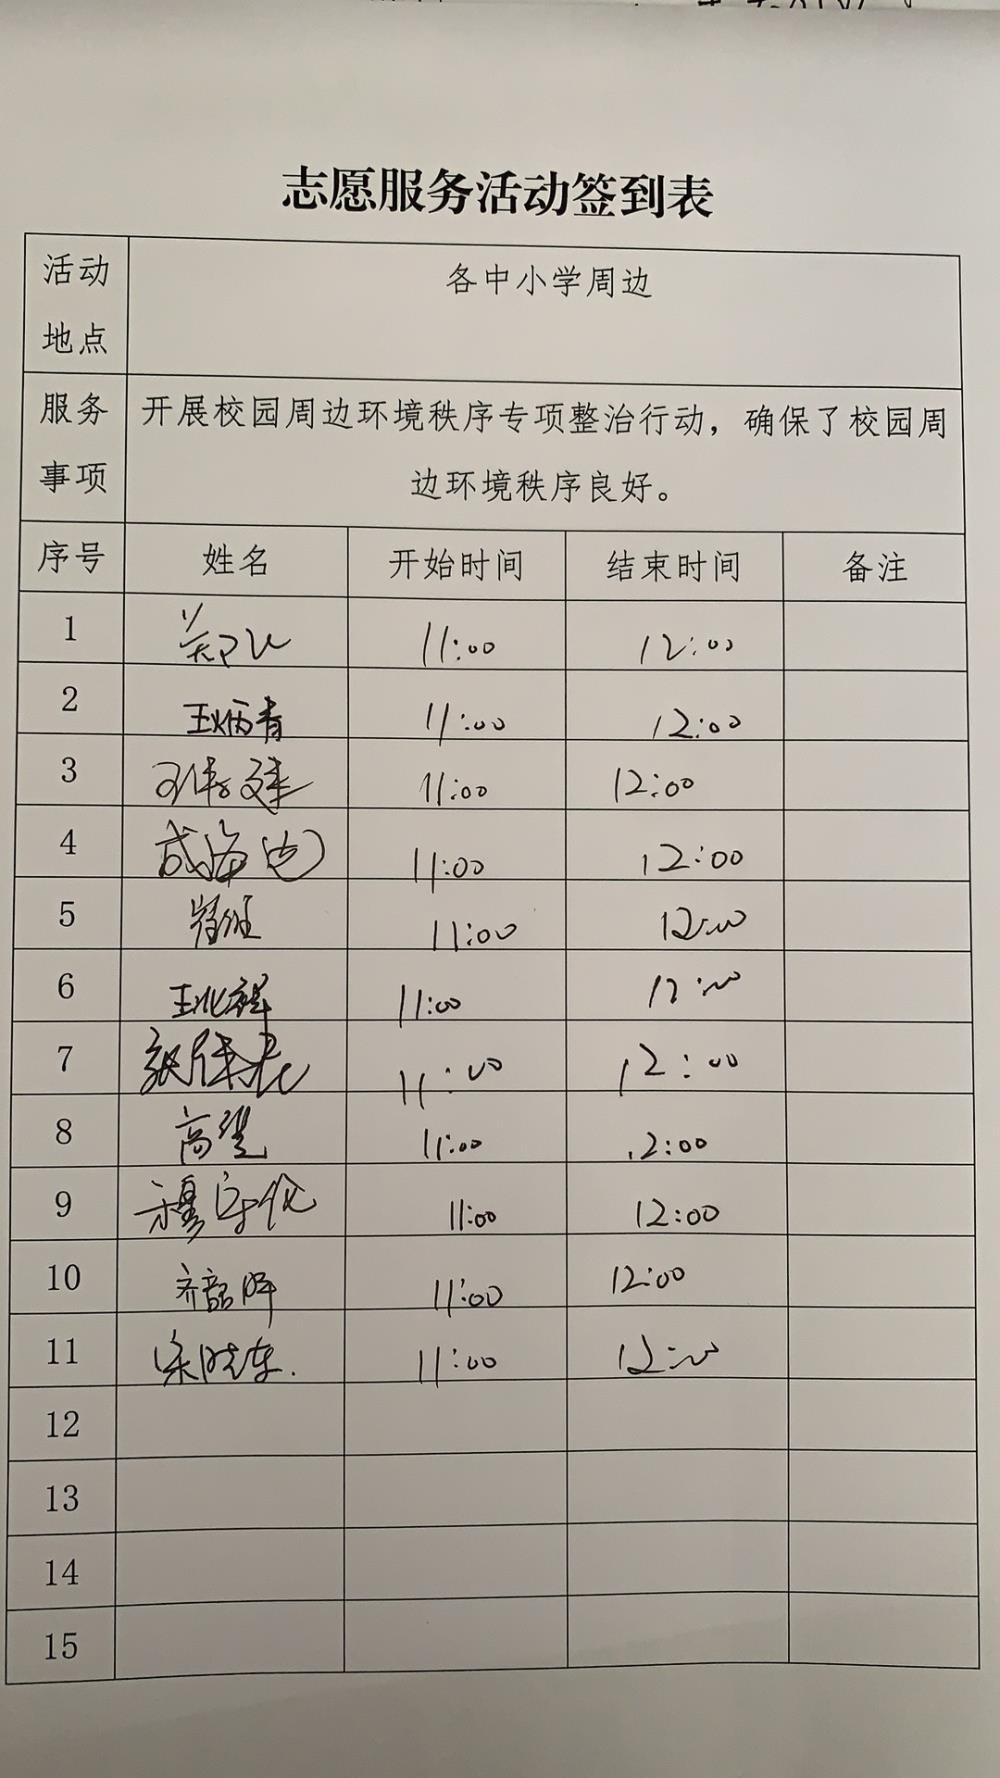 志愿服务活动签到表
活动地点 各中小学周边
服务事项 开展校园周边环境秩序专项整治行动，确保了校园周
边环境秩序良好。
序号 姓名 开始时间 结束时间 备注
1 11:00 12:00
2 王炳青 11:00 12:00
3 11:00 12:00
4 11:00 12:00
5 11:00 12:00
6 王兆祥 11:00 12:00
7 11:00 12:00
8 11:00 12:00
9 11:00 12:00
10 齐韶晖 11:00 12:00
11 11:00 12:00
12
13
14
15